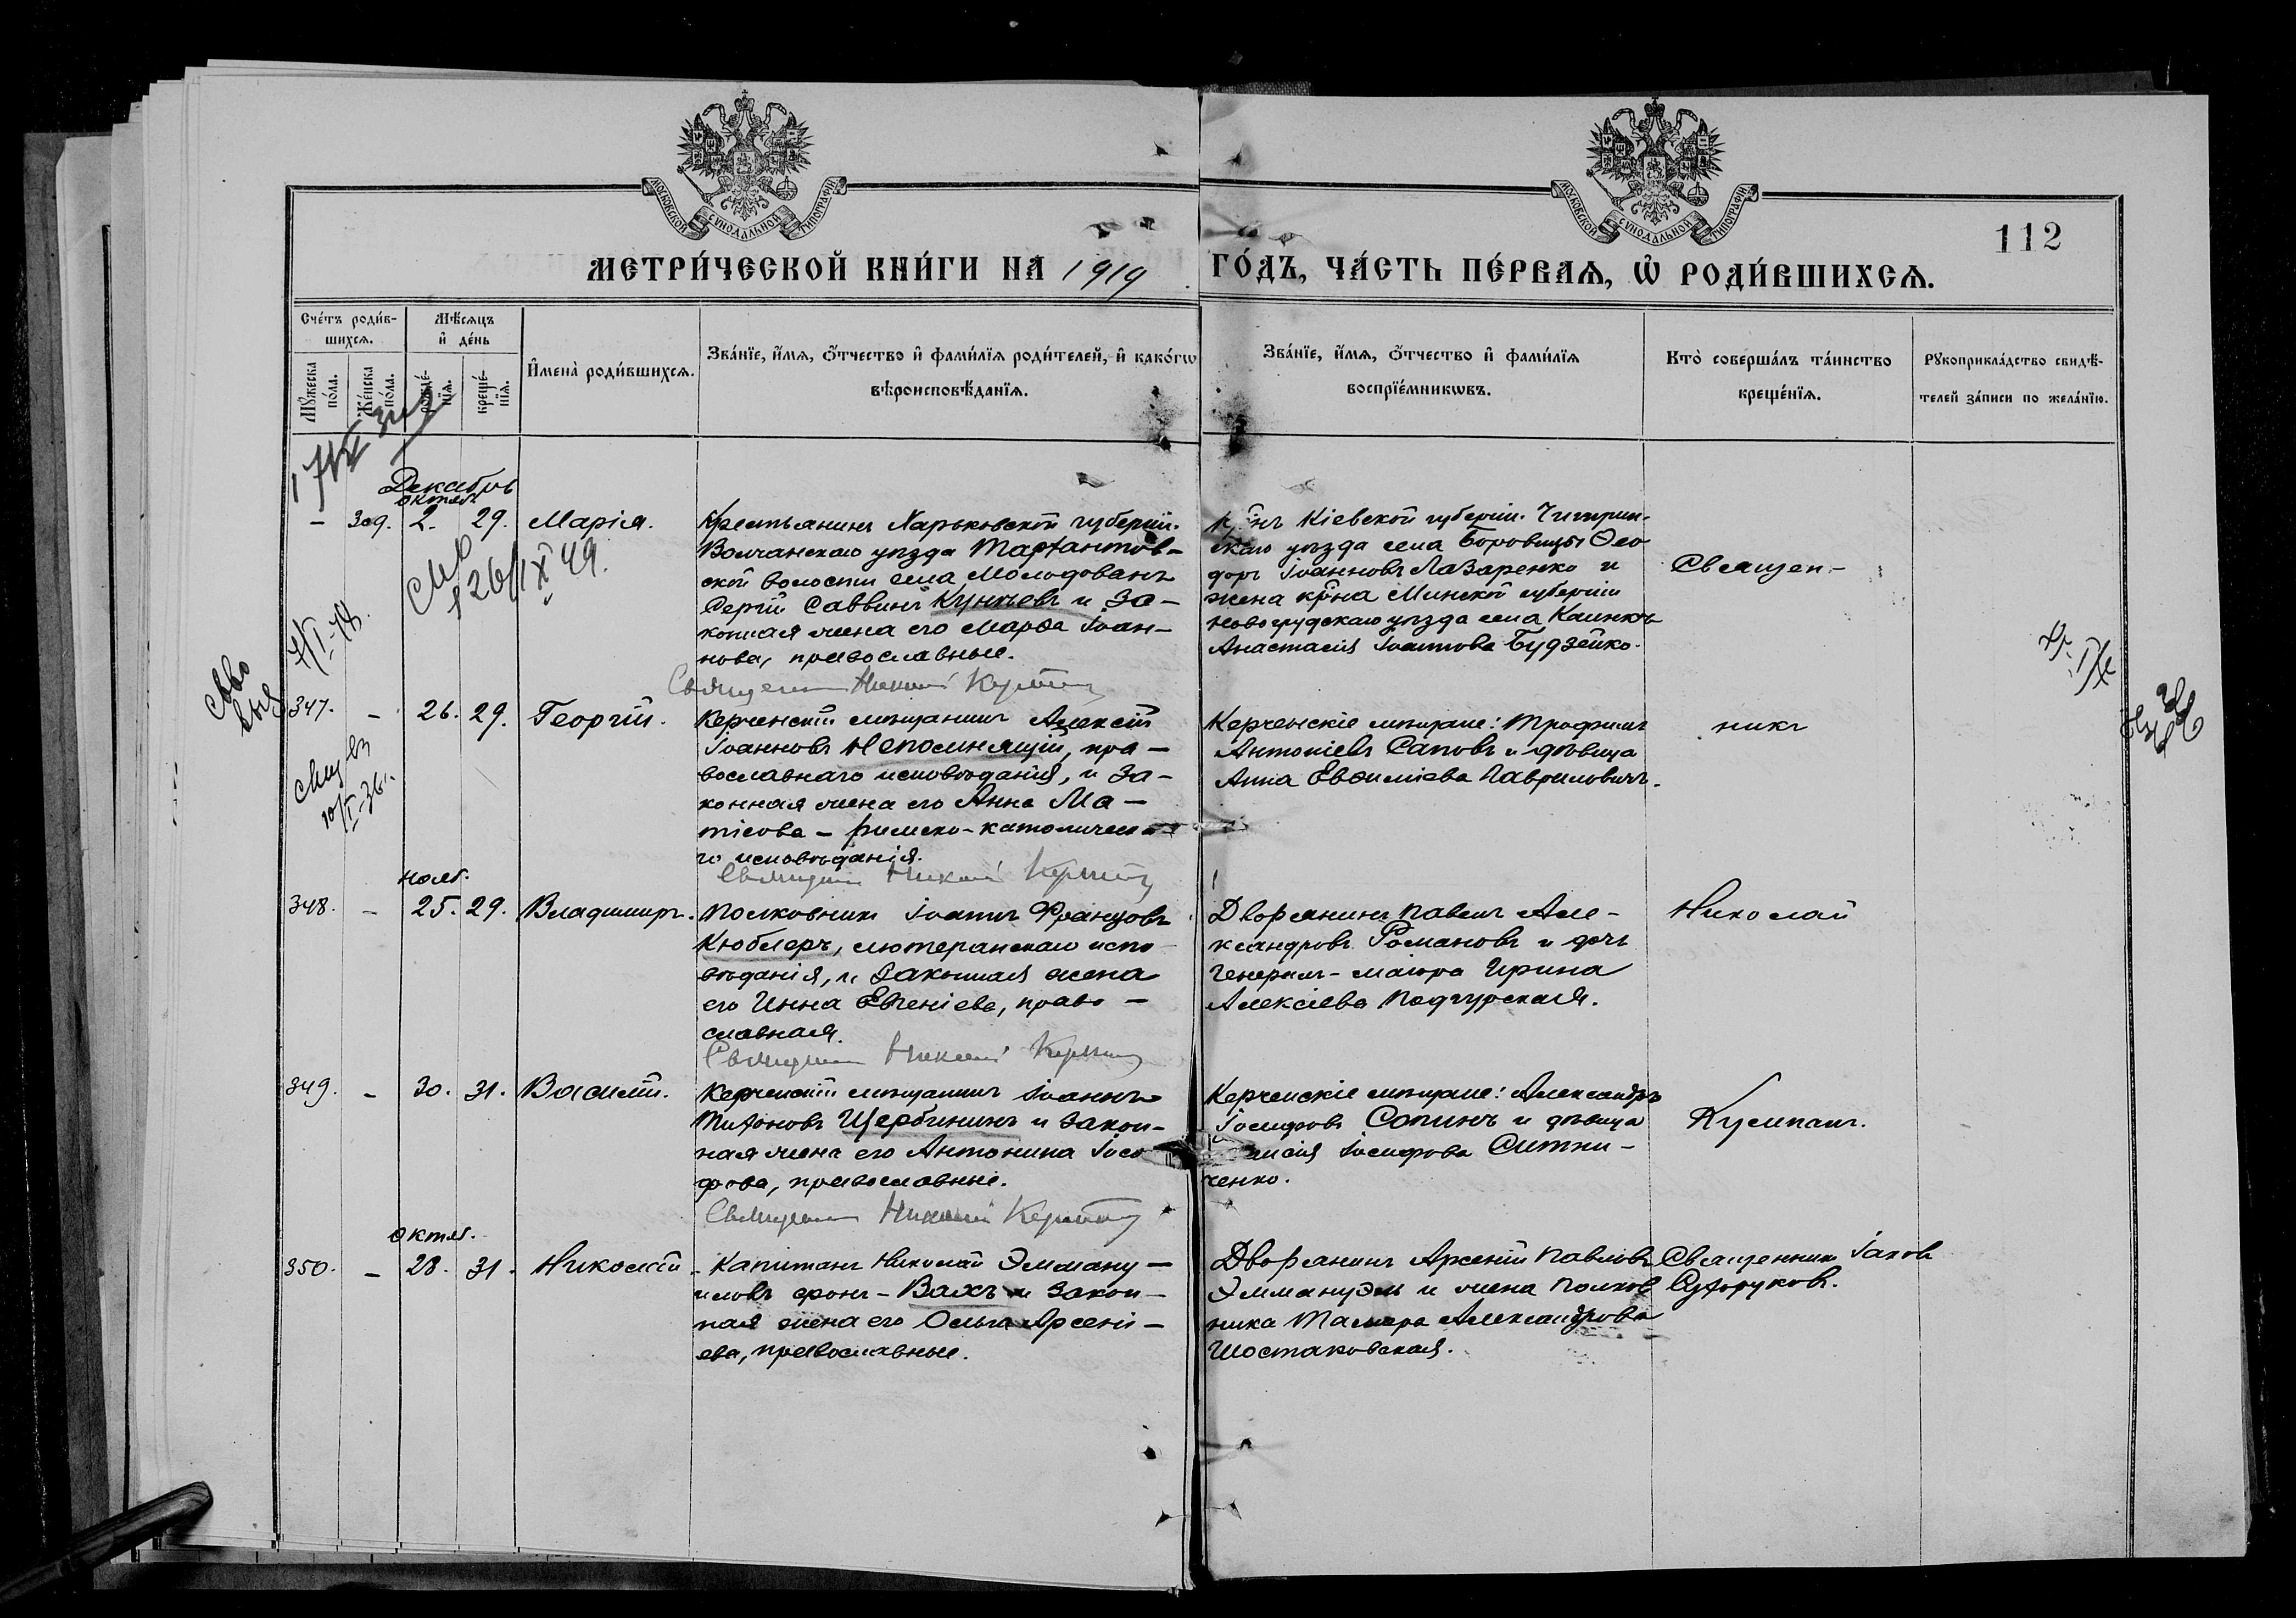 МОСКОВСКОЙ СѴНОДАЛЬНОЙ ТИПОГРАФІИ
МОСКОВСКОЙ СѴНОДАЛЬНОЙ ТИПОГРАФІИ
112
МЕТРИ́ЧЕСКОЙ КНИ́ГИ НА 1919 ГО́ДЪ, ЧА́СТЬ ПЕ́РВАѦ, Ѡ҆ РОДИ́ВШИХСѦ.
Сче́тъ роди́в-
шихсѧ.
Мꙋ́жеска по́ла.
Же́нска по́ла.
Мѣ́сѧцъ
и҆ де́нь
рожде́-
нїѧ.
креще́-
нїѧ.
И҆мена̀ роди́вшихсѧ.
Зва́нїе, и҆́мѧ, ѻ҆́тчество и҆ фами́лїѧ роди́телей, и҆ како́гѡ
вѣроисповѣ́данїѧ.
Зва́нїе, и҆́мѧ, ѻ҆́тчество и҆ фами́лїѧ
воспрїе́мникѡвъ.
Кто̀ соверша́лъ та́инство
креще́нїѧ.
Рꙋкоприкла́дство свидѣ́-
телей за́писи по жела́нїю.
Декабрь
октяб.
– 309. 2. 29. Марія.
Крестьянинъ Харьковской губерніи.
Волчанскаго уѣзда
ской волости села Молодовань
Сергій Саввинъ Кунчевъ и за-
конная жена его Марѳа Іоан-
нова, православные.
Кр-нъ Кіевской губерніи. Чигирин-
скаго уѣзда села Боровицы Ѳео-
доръ Іоанновъ Лазаренко и
жена кр-на Минской губерніи
Новогрудскаго уѣзда села
Анастасія Іоаннова Будзейко.
Священ-
26/IX 49.
Священникъ Николай
347. – 26. 29. Георгій.
Керченскій мѣщанинъ Алексій
Іоанновъ Непомнящій, пра-
вославнаго исповѣданія, и за-
конная жена его Анна Ма-
тісова – римско-католическа
го исповѣданія.
Керченскіе мѣщане: Трофимъ
Антоніевъ Саповъ и дѣвица
Анна Евѳиміева Гавриловичъ.
никъ
10/I-36.
Священникъ Николай
нояб.
348. – 25. 29. Владимиръ.
Полковникъ Іоаннъ Францовъ
Кюблеръ, лютеранскаго испо
вѣданія, и законная жена
его Инна Евгеніева, право-
славная.
Дворянинъ Павелъ Але-
ксандровъ Романовъ и дочь
генералъ-маіора Ирина
Алексіева Подгурская.
Николай
Священникъ Николай
349. – 30. 31. Василій.
Керченскій мѣщанинъ Іоаннъ
Тихоновъ Щербининъ и закон-
ная жена его Антонина Іоси
фова, православные.
Керченскіе мѣщане: Александръ
Іосифовъ Сопинъ и дѣвица
Іосифова Ситни-
ченко.
Священникъ Николай
октяб.
350. – 28. 31. Николай
Капитанъ Николай Эмману-
иловъ фонъ-Вахъ и закон-
ная жена его Ольга Арсені-
ева, православные.
Дворянинъ Арсеній Павловъ
Эммануэль и жена полков
ника Тамара Александрова
Шостаковская.
Священникъ Іаковъ
Сухоруковъ.